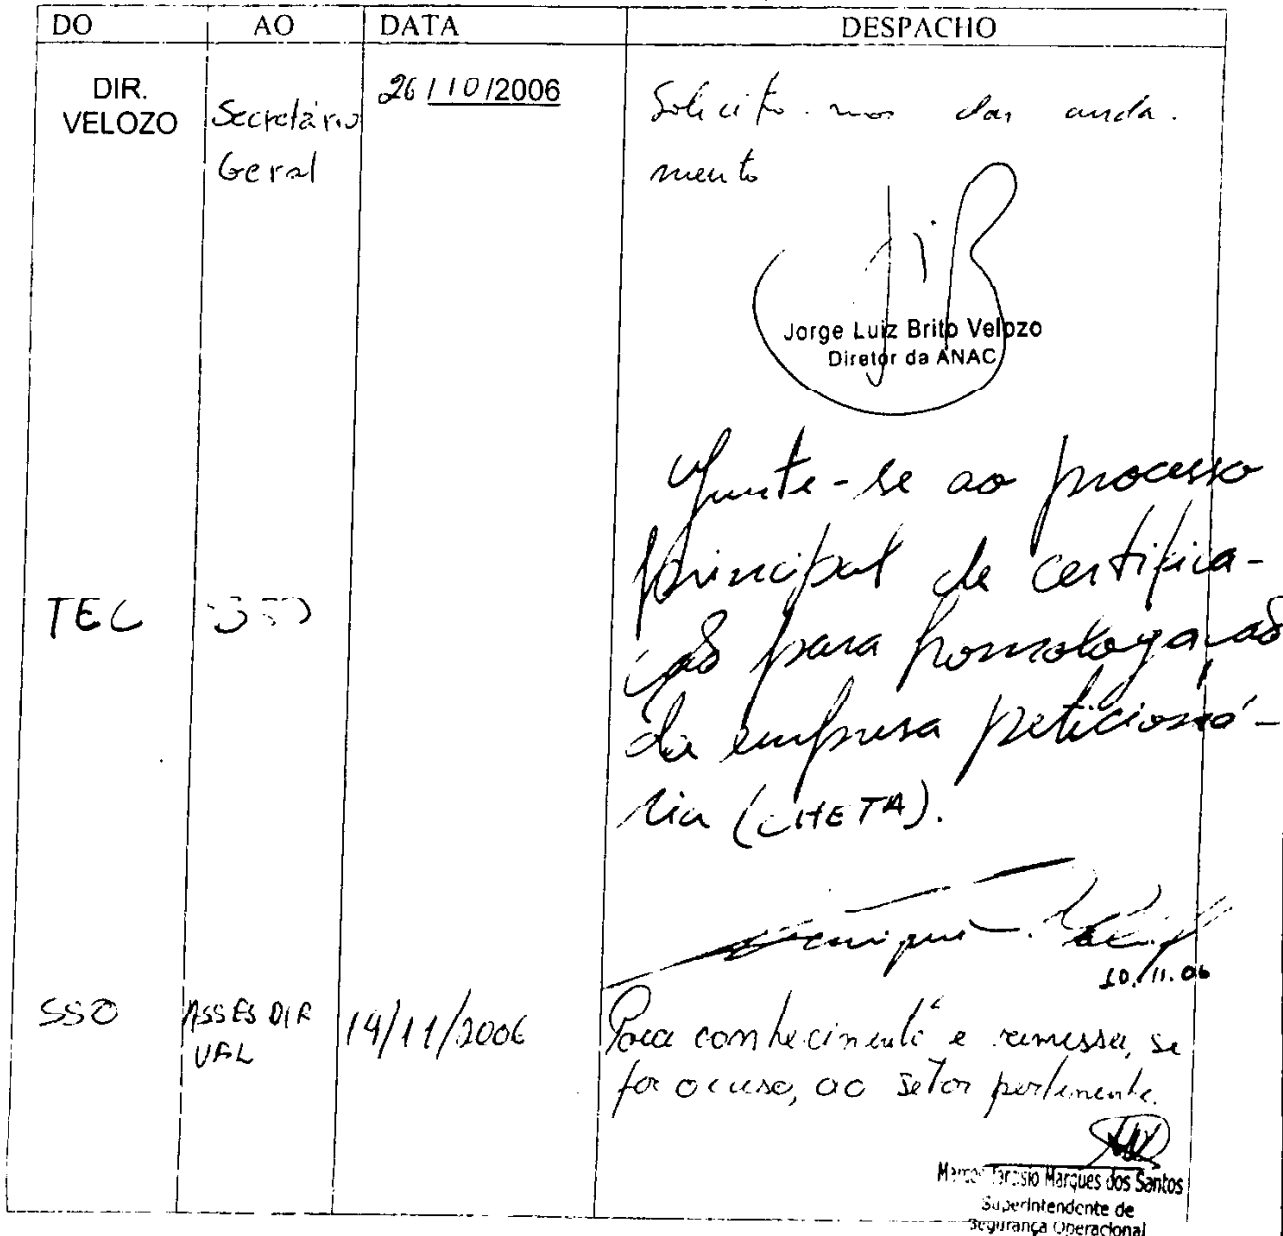 DO AO DATA DESPACHO
DIR. VELOZO
Secretário Geral
26/10/2006
Solicito-nos dar anda-
mento
Jorge Luiz Brito Velozo
Diretor da ANAC
TEC
Junte-se ao processo
principal de certifica-
ção para homologação
da empresa peticioná-
ria (CHETA).
10.11.06
SSO
ASSES DIR
VEL
14/11/2006
Para conhecimento e remessa, se
for o caso, ao setor pertinente.
Marques dos Santos
Superintendente de
Segurança Operacional